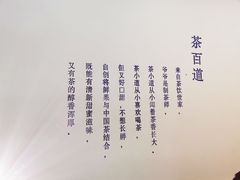 茶百道
来自茶饮世家，
爷爷是制茶师，
茶小道从小闻着茶香长大，
茶小道从小喜欢喝茶，
但又好口甜，不想长胖，
自创将鲜果与中国茶结合，
既能有清新甜蜜滋味，
又有茶的醇香浑厚。